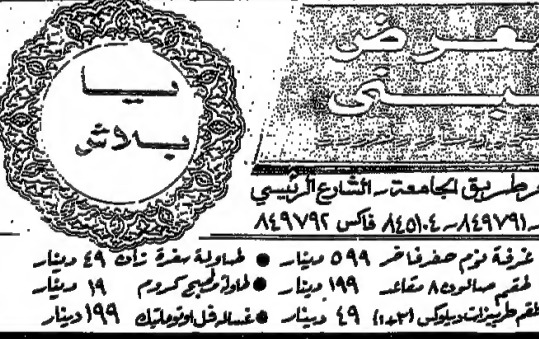 معرض
يا
بلاش
طريق الجامعة - الشارع الرئيسي
٨٤٩٧٩١ - ٨٤٥١٠٤ فاكس ٨٤٩٧٩٢
غرفة نوم حفر فاخر ٥٩٩ دينار ● طاولة سفرة زان ٤٩ دينار
طقم صالون ٨ مقاعد ١٩٩ دينار ● طاولة مطبخ كروم ١٩ دينار
طقم طربيزات ديلوكس (١+٢) ٤٩ دينار ● غسالة فل اوتوماتيك ١٩٩ دينار